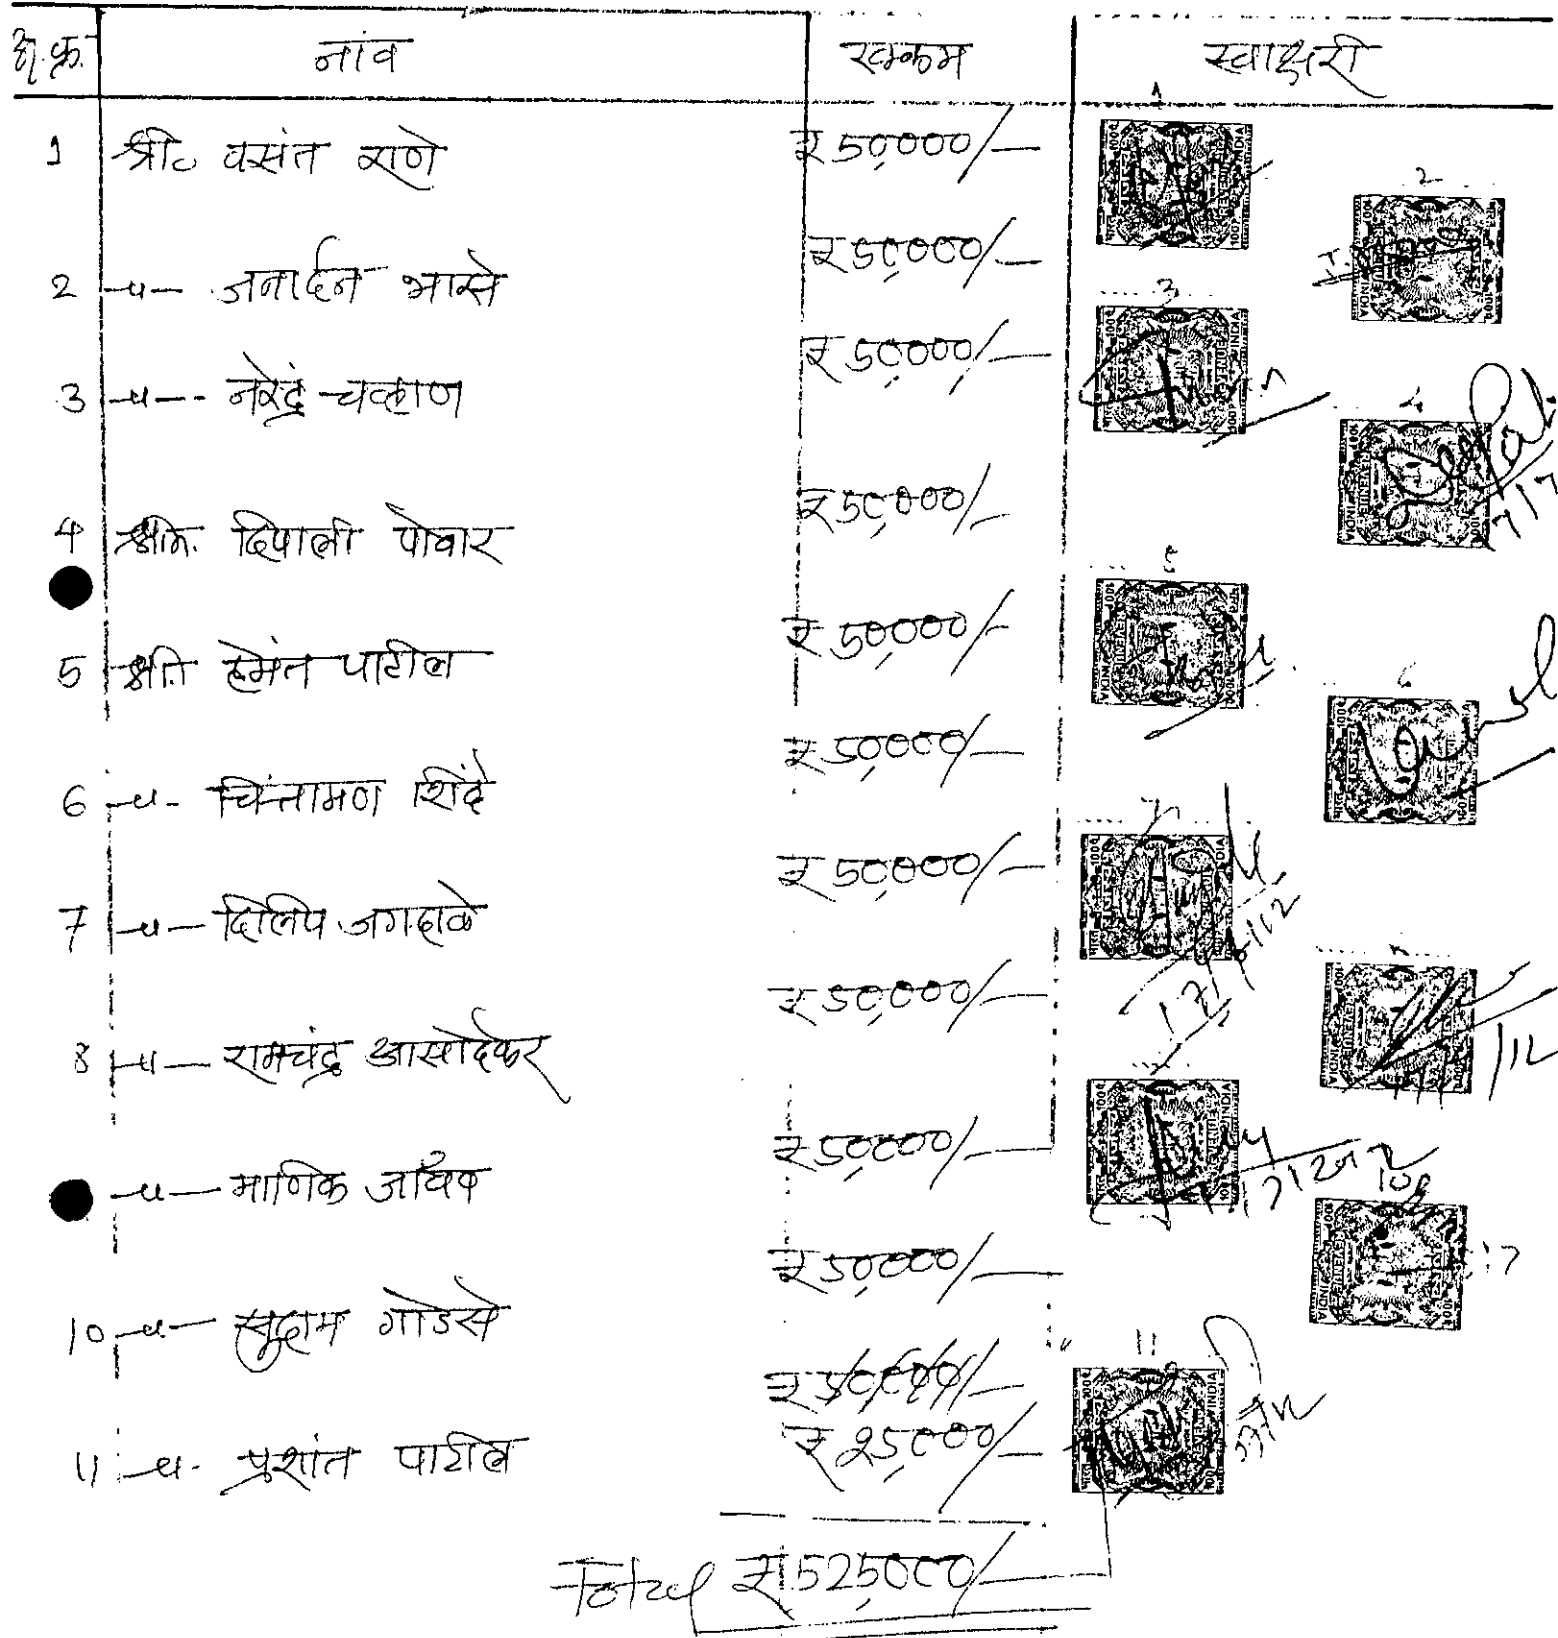 अ.क्र. नांव रक्कम स्वाक्षरी
1 श्री. वसंत राणे ₹ 50,000/-
2 -"- जनार्दन भासे ₹ 50,000/-
3 -"- नरेंद्र चव्हाण ₹ 50,000/-
4 श्रीम. दिपाली पोवार ₹ 50,000/-
5 श्री. हेमंत पाटील ₹ 50,000/-
6 -"- चिंतामण शिंदे ₹ 50,000/-
7 -"- दिलिप जगदाळे ₹ 50,000/-
8 -"- रामचंद्र आसोदेकर ₹ 50,000/-
-"- माणिक जाधव ₹ 50,000/-
10 -"- सुदाम गोडसे ₹ 50,000/-
₹ 50,000/-
11 -"- प्रशांत पाटील ₹ 25,000/-
Total ₹ 525000/-